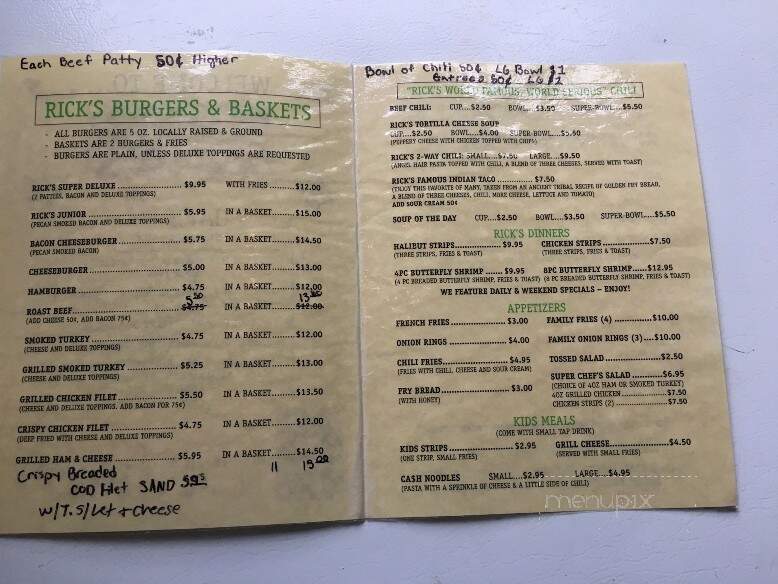 Each Beef Patty 50¢ Higher
RICK'S BURGERS & BASKETS
- ALL BURGERS ARE 5 OZ. LOCALLY RAISED & GROUND
- BASKETS ARE 2 BURGERS & FRIES
- BURGERS ARE PLAIN, UNLESS DELUXE TOPPINGS ARE REQUESTED
RICK'S SUPER DELUXE ................ $9.95 WITH FRIES ......$12.00
(2 PATTIES, BACON AND DELUXE TOPPINGS)
RICK'S JUNIOR ................ $5.95 IN A BASKET......$15.00
(PECAN SMOKED BACON AND DELUXE TOPPINGS)
BACON CHEESEBURGER ................ $5.75 IN A BASKET......$14.50
(PECAN SMOKED BACON)
CHEESEBURGER ................ $5.00 IN A BASKET......$13.00
HAMBURGER ................ $4.75 IN A BASKET......$12.00
5.50 13.00
ROAST BEEF ................ $4.75 IN A BASKET......$12.00
(ADD CHEESE 50¢, ADD BACON 75¢)
SMOKED TURKEY ................ $4.75 IN A BASKET......$12.00
(CHEESE AND DELUXE TOPPINGS)
GRILLED SMOKED TURKEY ................ $5.25 IN A BASKET......$13.00
(CHEESE AND DELUXE TOPPINGS)
GRILLED CHICKEN FILET ................ $5.50 IN A BASKET......$13.50
(CHEESE AND DELUXE TOPPINGS. ADD BACON FOR 75¢)
CRISPY CHICKEN FILET ................ $4.75 IN A BASKET......$12.00
(DEEP FRIED WITH CHEESE AND DELUXE TOPPINGS)
GRILLED HAM & CHEESE ................ $5.95 IN A BASKET......$14.50
Crispy Breaded 11 15.00
COD filet SAND 5.95
w/T.S/Let + cheese
Bowl of Chili 50¢ LG Bowl $1
Entrees 50¢ LG $1
"RICK'S WORLD FAMOUS, WORLD SERIOUS" CHILI
BEEF CHILI: CUP....$2.50 BOWL....$3.50 SUPER-BOWL....$5.50
RICK'S TORTILLA CHEESE SOUP
CUP....$2.50 BOWL....$4.00 SUPER-BOWL....$5.50
(PEPPERY CHEESE WITH CHICKEN TOPPED WITH CHIPS)
RICK'S 2-WAY CHILI: SMALL....$7.50 LARGE....$9.50
(ANGEL HAIR PASTA TOPPED WITH CHILI, A BLEND OF THREE CHEESES, SERVED WITH TOAST)
RICK'S FAMOUS INDIAN TACO ................ $7.50
(ENJOY THIS FAVORITE OF MANY, TAKEN FROM AN ANCIENT TRIBAL RECIPE OF GOLDEN FRY BREAD,
A BLEND OF THREE CHEESES, CHILI, MORE CHEESE, LETTUCE AND TOMATO)
ADD SOUR CREAM 50¢
SOUP OF THE DAY CUP....$2.50 BOWL....$3.50 SUPER-BOWL....$5.50
RICK'S DINNERS
HALIBUT STRIPS................ $9.95 CHICKEN STRIPS ................$7.50
(THREE STRIPS, FRIES & TOAST) (THREE STRIPS, FRIES & TOAST)
4PC BUTTERFLY SHRIMP ....... $9.95 8PC BUTTERFLY SHRIMP......$12.95
(4 PC BREADED BUTTERFLY SHRIMP, FRIES & TOAST) (8 PC BREADED BUTTERFLY SHRIMP, FRIES & TOAST)
WE FEATURE DAILY & WEEKEND SPECIALS – ENJOY!
APPETIZERS
FRENCH FRIES ................ $3.00 FAMILY FRIES (4) ............$10.00
ONION RINGS ................ $4.00 FAMILY ONION RINGS (3)....$10.00
CHILI FRIES................ $4.95 TOSSED SALAD ................$2.50
(FRIES WITH CHILI, CHEESE AND SOUR CREAM) SUPER CHEF'S SALAD ................$6.95
(CHOICE OF 4OZ HAM OR SMOKED TURKEY)
FRY BREAD ................ $3.00 4OZ GRILLED CHICKEN ................$7.50
(WITH HONEY) CHICKEN STRIPS (2) ................$7.50
KIDS MEALS
(COME WITH SMALL TAP DRINK)
KIDS STRIPS ................ $2.95 GRILL CHEESE................$4.50
(ONE STRIP, SMALL FRIES) (SERVED WITH SMALL FRIES)
CASH NOODLES SMALL....$2.95 LARGE....$4.95
(PASTA WITH A SPRINKLE OF CHEESE & A LITTLE SIDE OF CHILI)
menupix